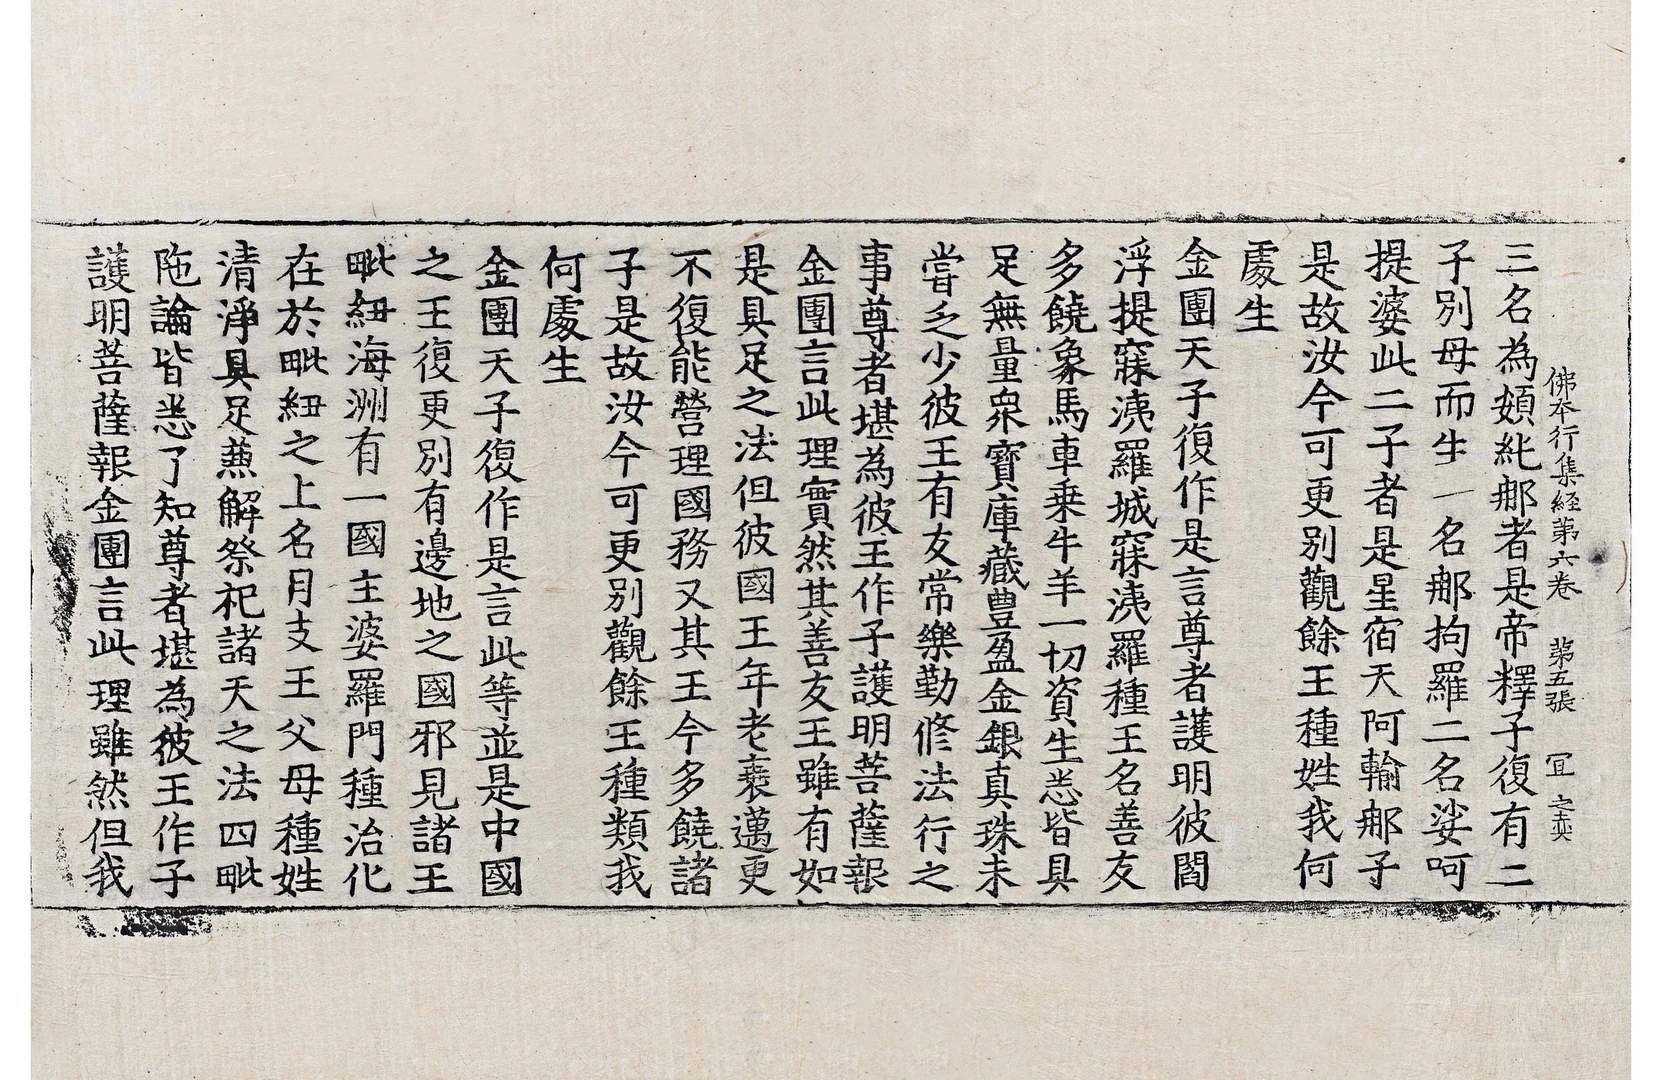 佛本行集經第六卷　第五張　冝　之真
三名為頗純那者是帝釋子復有二
子別母而生一名那拘羅二名娑呵
提婆此二子者是星宿天阿輸那子
是故汝今可更別觀餘王種姓我何
處生
金團天子復作是言尊者護明彼閻
浮提寐洟羅城寐洟羅種王名善友
多饒象馬車乗牛羊一切資生悉皆具
足無量眾寶庫藏豊盈金銀真珠未
嘗乏少彼王有友常樂勤修法行之
事尊者堪為彼王作子護明菩薩報
金團言此理實然其善友王雖有如
是具足之法但彼國王年老衰邁更
不復能營理國務又其王今多饒諸
子是故汝今可更別觀餘王種類我
何處生
金團天子復作是言此等並是中國
之王復更別有邊地之國邪見諸王
毗紐海洲有一國主婆羅門種治化
在於毗紐之上名月支王父母種姓
清淨具足兼解祭祀諸天之法四毗
陁論皆悉了知尊者堪為彼王作子
護明菩薩報金團言此理雖然但我